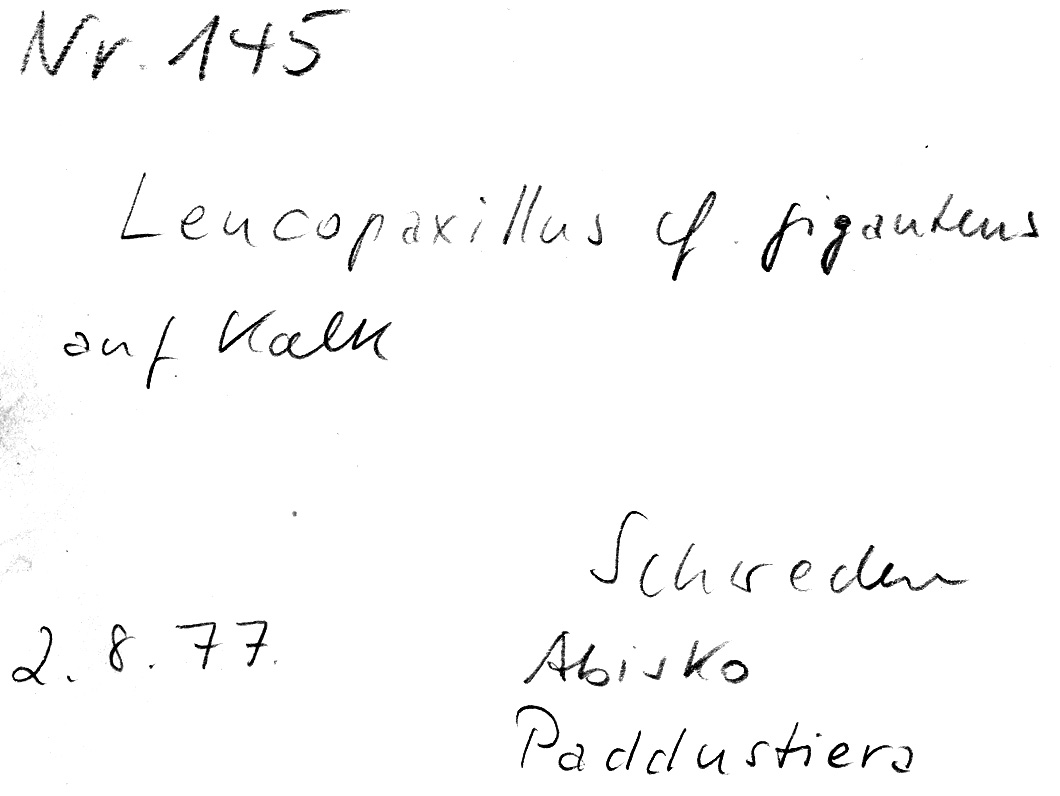 Nr. 145
Leucopaxillus cf. giganteus
auf Kalk
Schweden
2.8.77. Abisko
Paddustiera